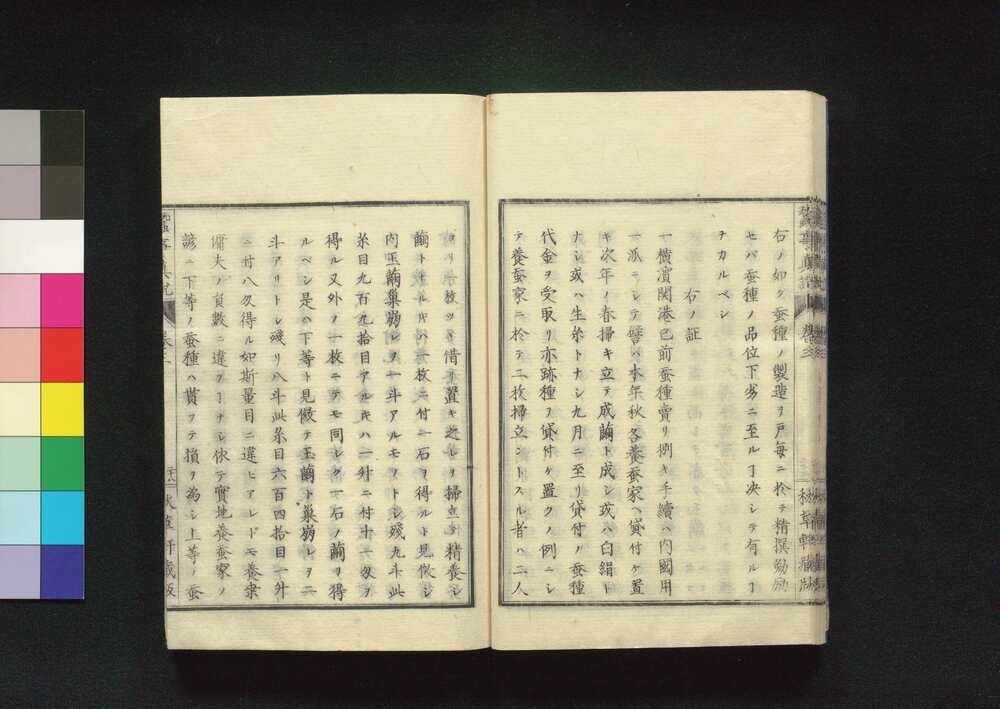 右ノ如ク蚕種ノ製造リ戸毎ニ於テ精撰勉励
セバ蚕種ノ品位下劣ニ至ルヿ决シテ有ルヿ
チカルベシ
右ノ証
一横濱関港已前蚕種賣リ捌キ手續ハ内國用
一派ニシテ譬ハ本年秋各養蚕家ヘ貸付ケ置
キ次年ノ春掃キ立テ成繭ト成シ或ハ白絹ト
ナシ或ハ生糸トナシ九月ニ至リ貸付ノ蚕種
代金ヲ受取リ亦跡種ヲ貸付ケ置クノ例ニシ
テ養蚕家ニ於テ二枚掃立ントスル者ハ二人
ヨリ枚ツヽ借リ置キ之レヲ掃立テ精養シ
繭トナル片ハ一枚ニ付一石ヲ得ルト見做シ
内玉繭巣弱レヲ一斗アルモノトシ残九斗此
糸目九百九拾目アル片ハ一升ニ付十一匁ヲ
得ル又外ノ一枚ニテモ同シク一石ノ繭ヲ得
ルベシ是ハ下等ト見做テ玉繭ト巣弱レヲ二
斗アリトシ残リ八斗此糸目六百四拾目一升
ニ付八匁得ル如斯量目ニ違ヒアレドモ養桒
傭夫ノ員數ニ違フヿナシ依テ實地養蚕家ノ
諺ニ下等ノ蚕種ハ貰フテ損ヲ為シ上等ノ蚕